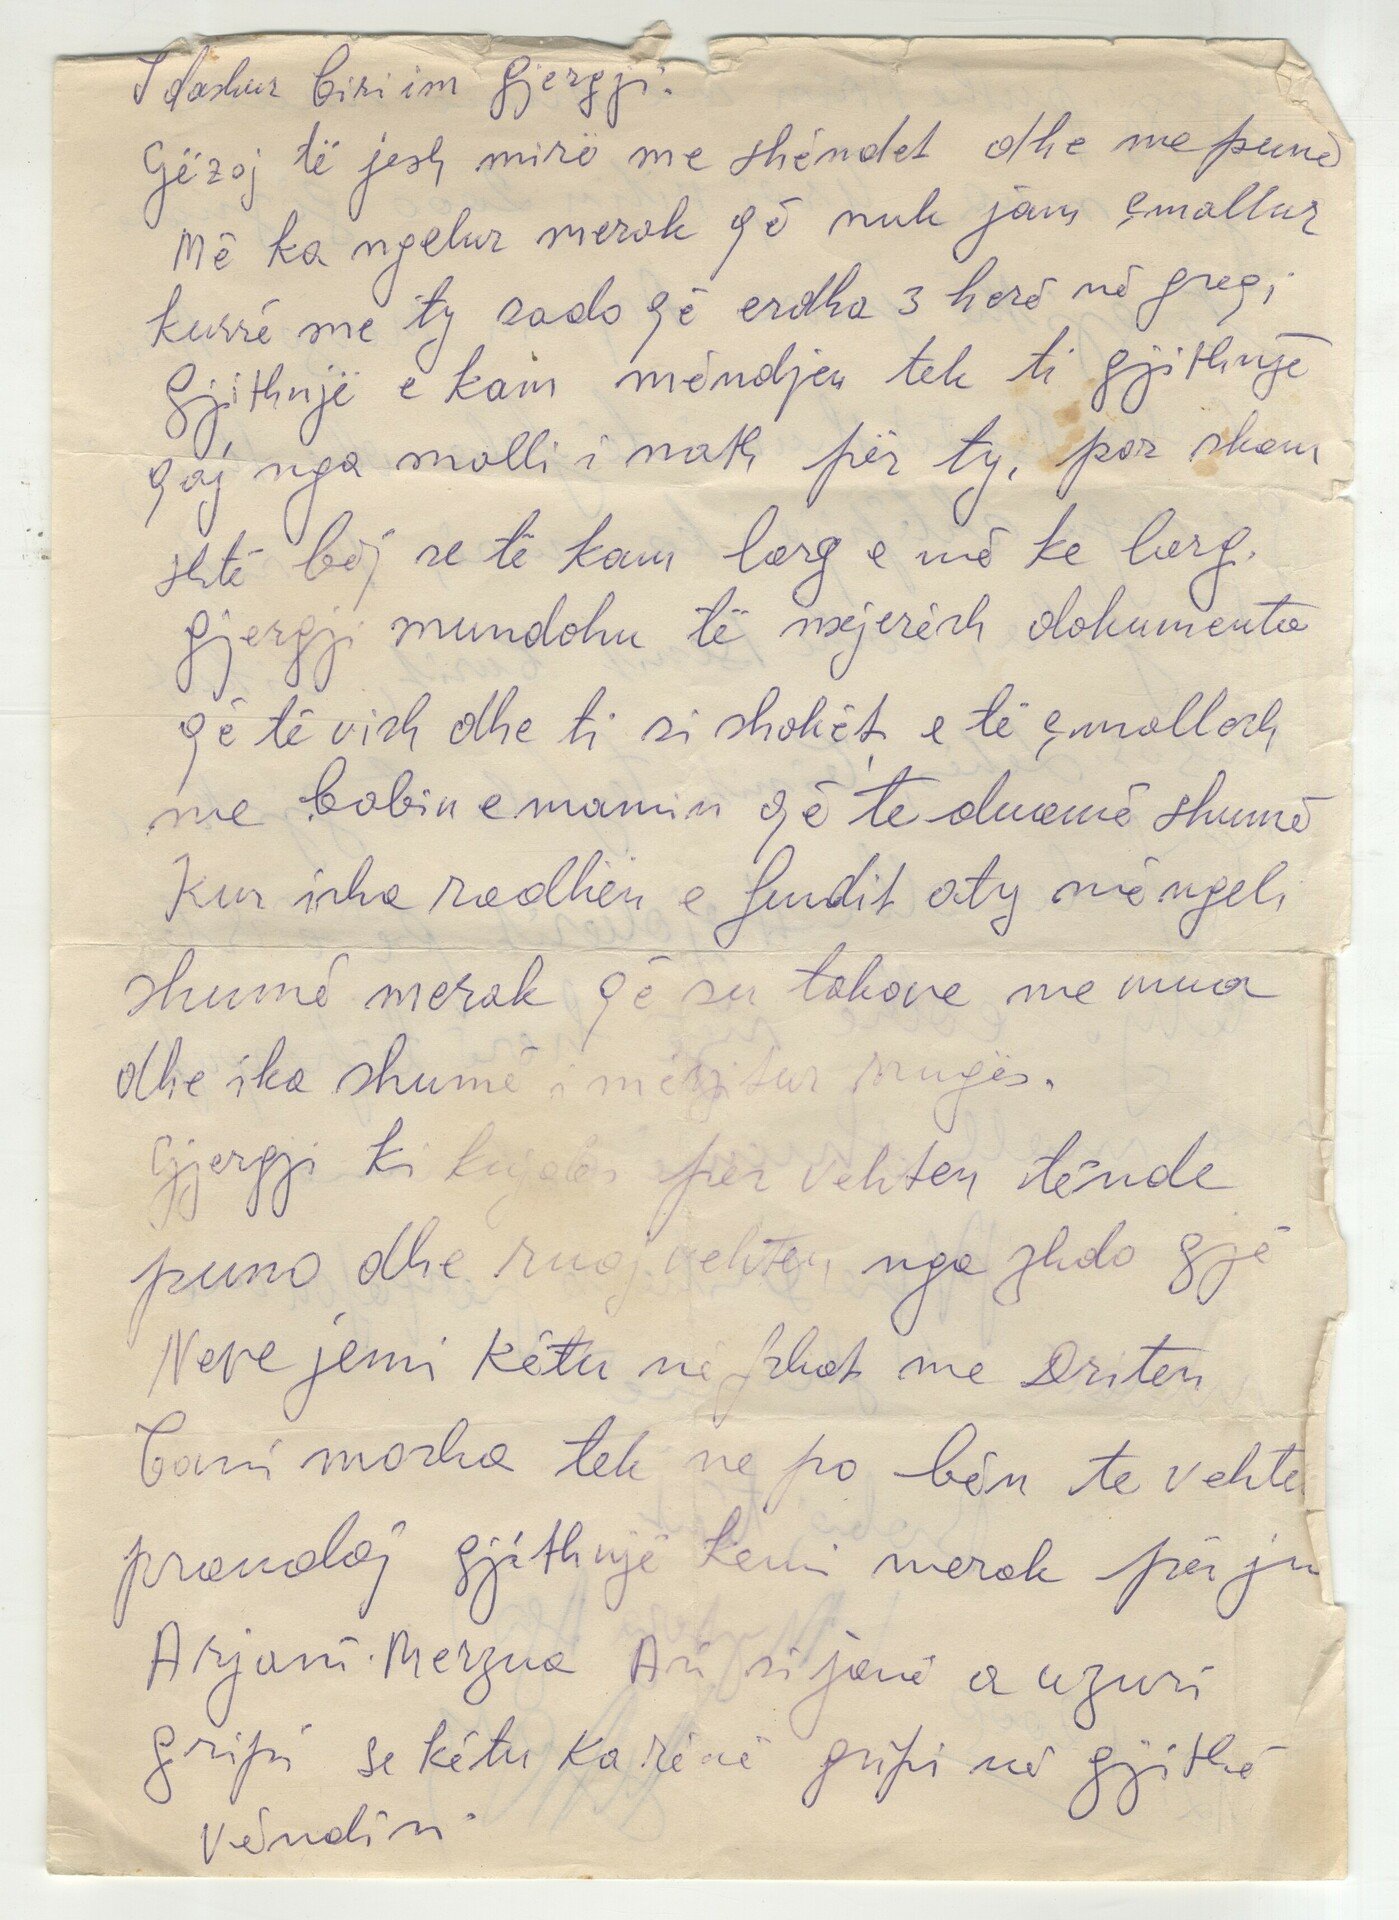 I dashur biri im Gjergji.
Gëzoj të jesh mirë me shëndet dhe me punë
Më ka ngelur merak që nuk jam çmallur
kurrë me ty sado që erdha 3 herë në greqi
Gjithnjë e kam mëndjen tek ti gjithnjë
qaj nga malli i math për ty, por skam
shtë bëj se të kam larg e më ke larg.
Gjergji mundohu të nxjerësh dokumenta
që të vish dhe ti si shokët e të çmallesh
me babin e mamin që te duamë shumë
Kur isha radhën e fundit aty më ngeli
shumë merak që su takove me mua
dhe ika shumë i mërzitur rrugës.
Gjergji ki kujdes për vehten tënde
puno dhe ruaj vehten nga zhdo gjë
Neve jemi këtu në fshat me Driten
tek ne po bën te vehte
prandaj gjithnjë kemi merak për ju
Arjani Merzua Ari si janë a uzuri
gripi se këtu ka rënë gripi në gjithë
vëndin